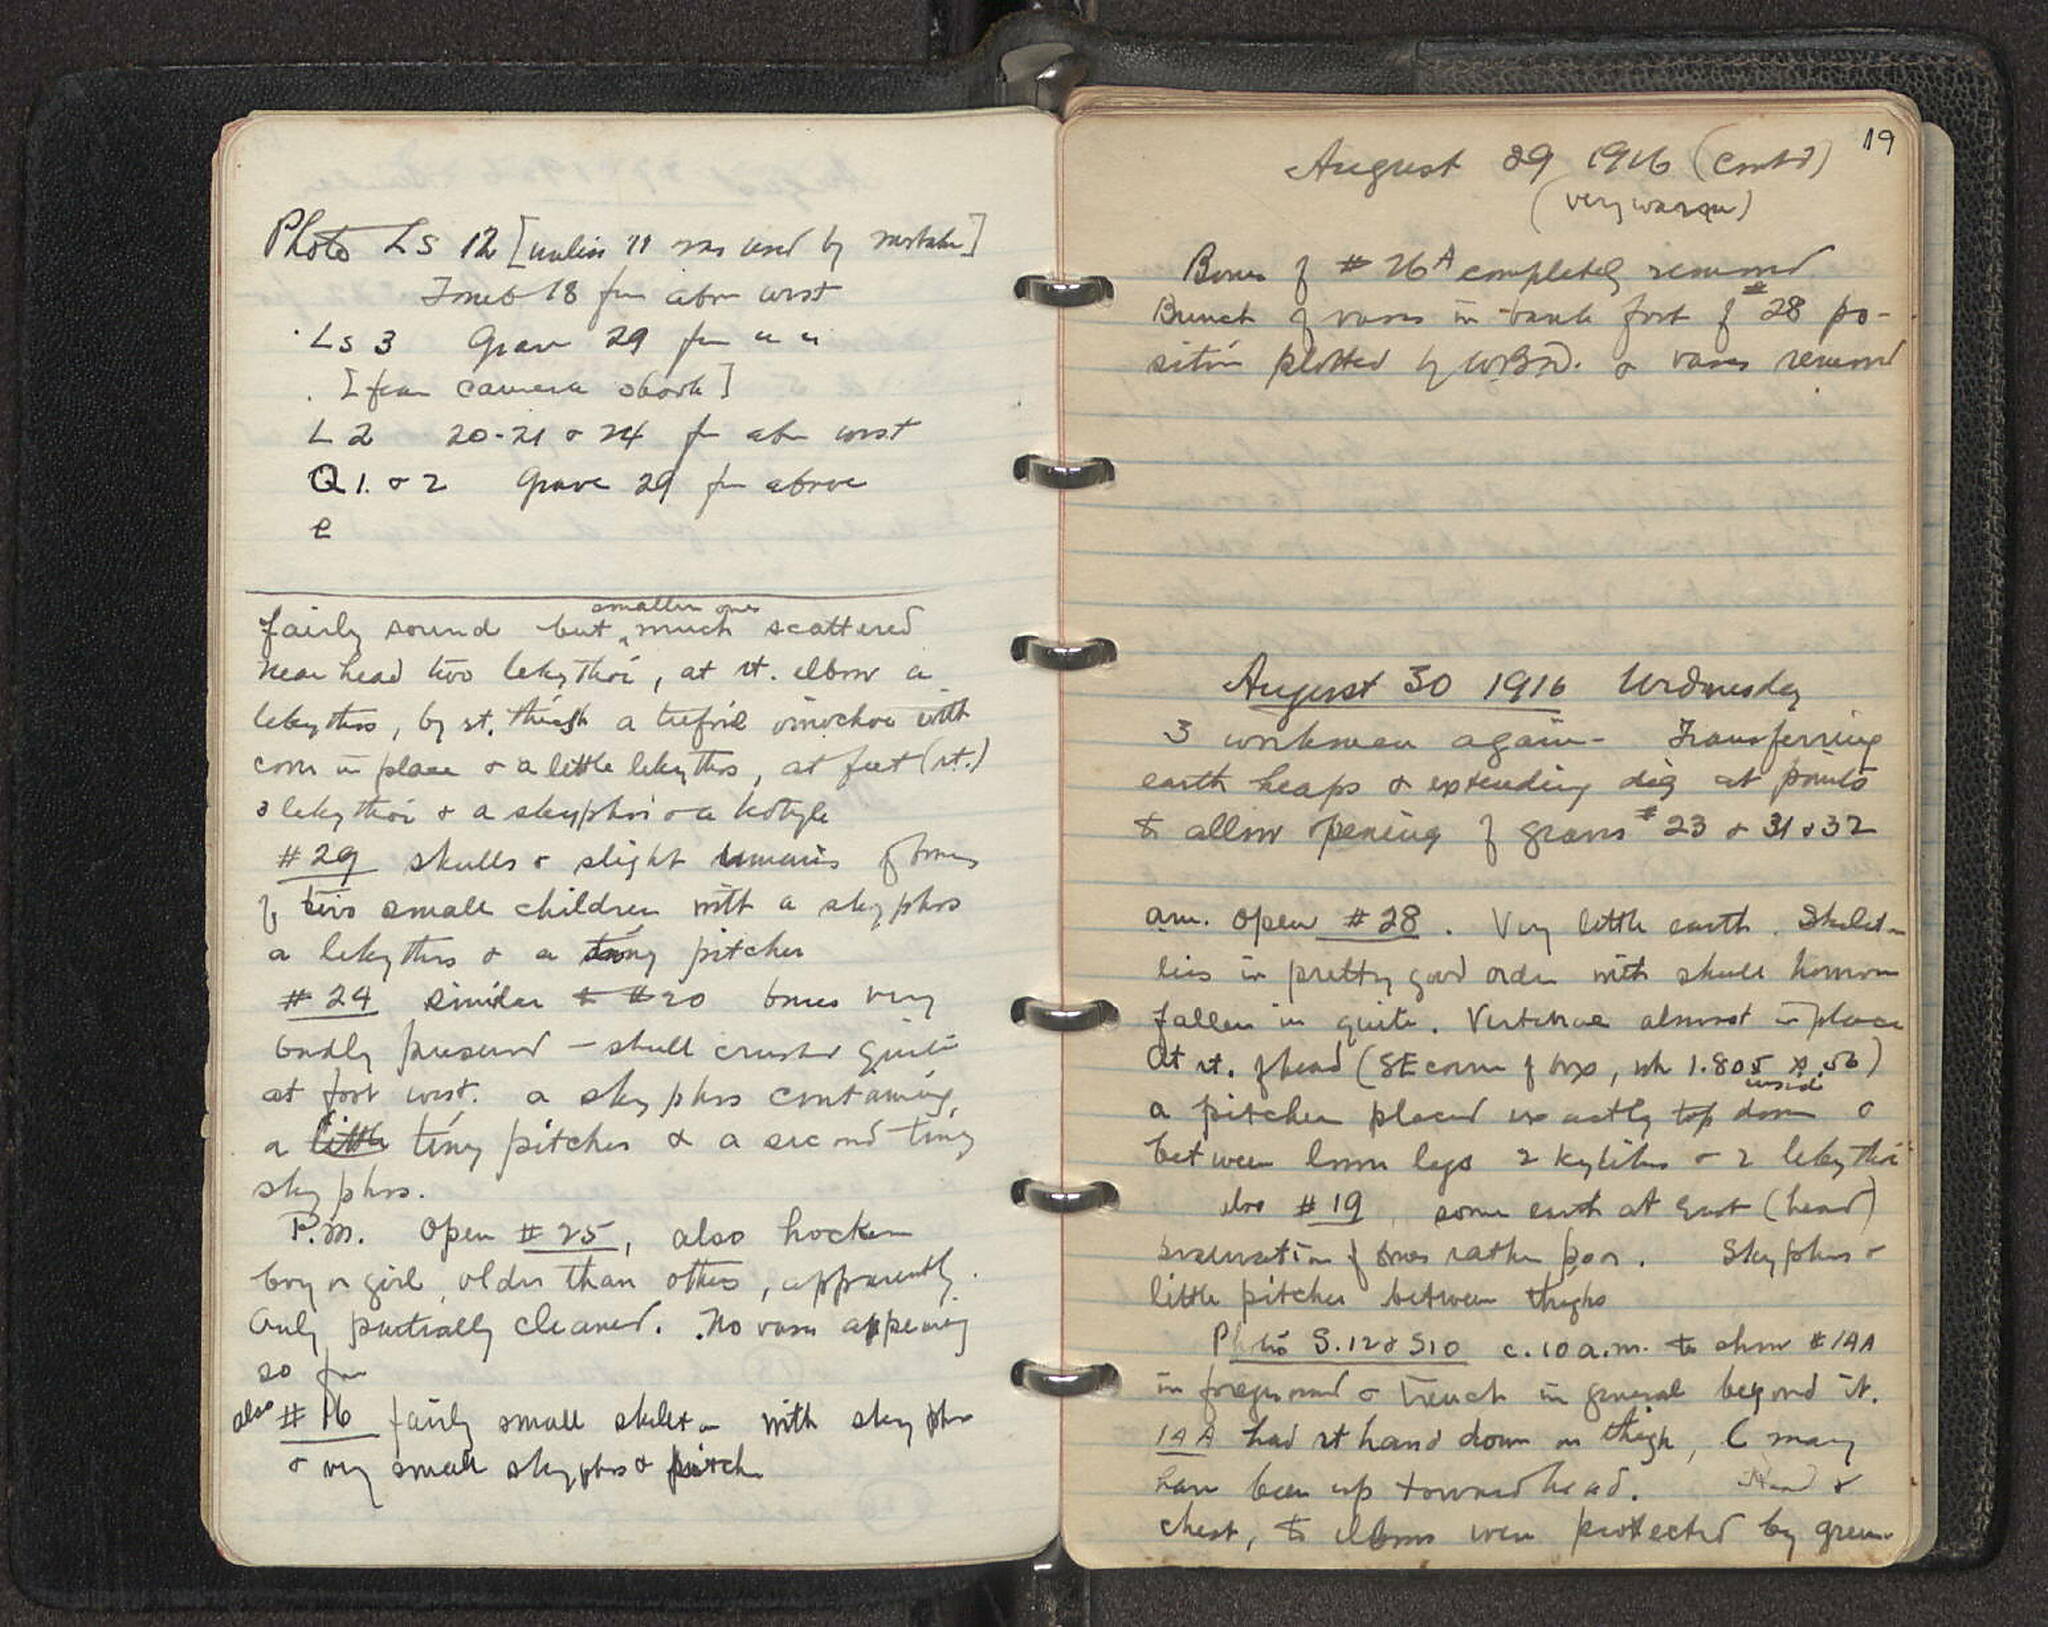 Photo LS 12 [unless 11 was used by mistake]
Tomb 18 fm above west
LS 3 Grave 29 fm " "
[fear camera shook]
L 2 20-21 & 24 fm abv west
Q 1. & 2 Grave 29 fm above
e
fairly sound but smaller ones much scattered
near head two lekythoi, at rt. elbow a
lekythos, by rt. thigh a trefoil oinochoe with
cover in place & a little lekythos, at feet (rt.)
3 lekythoi & a skyphos & a kotyle
#29 skulls & slight remains of bones
of two small children with a skyphos
a lekythos & a tiny pitcher
#24 similar to #20 bones very
badly preserved – skull crushed quite
at foot west. a skyphos containing
a little tiny pitcher & a second tiny
skyphos.
P.M. Open #25, also hocker
boy or girl, older than others, apparently.
Only partially cleaned. No vases appearing
so far
also #16 fairly small skeleton with skyphos
& very small skyphos & pitch
19
August 29 1916 (contd)
(very warm)
Bones of #26A completely removed
Bunch of vases in bank foot of #28 po-
sition plotted by WBD. & vases removed
August 30 1916 Wednesday
3 workmen again - Transferring
earth heaps & extending dig at points
to allow opening of graves #23 & 31 & 32
am. Open #28. Very little earth. Skeleton
lies in pretty good order with skull however
fallen in quite. Vertebrae almost in place
At rt. of head (SE corner of box, wh 1.805 x .56)
a pitcher placed exactly top down inside &
between lower legs 2 kylikes & 2 lekythoi
also #19 some earth at East (head)
preservation of bones rather poor. Skyphos &
little pitcher between thighs
Photo S.12 & S10 c. 10 a.m. to show #14A
in foreground & trench in general beyond it.
14A had rt hand down on thigh, L may
have been up toward head. Head &
chest, to elbows were protected by green